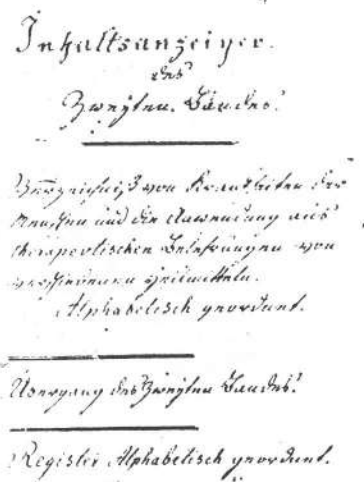 Inhaltsanzeiger
des
Zweyten Bandes.
Verzeichniß von Krankheiten der
Menschen und die Anwendung aus
therapeutischen Belehrungen von
verschiedenen Heilmitteln.
Alphabetisch geordnet.
des Zweyten Bandes.
Register Alphabetisch geordnet.